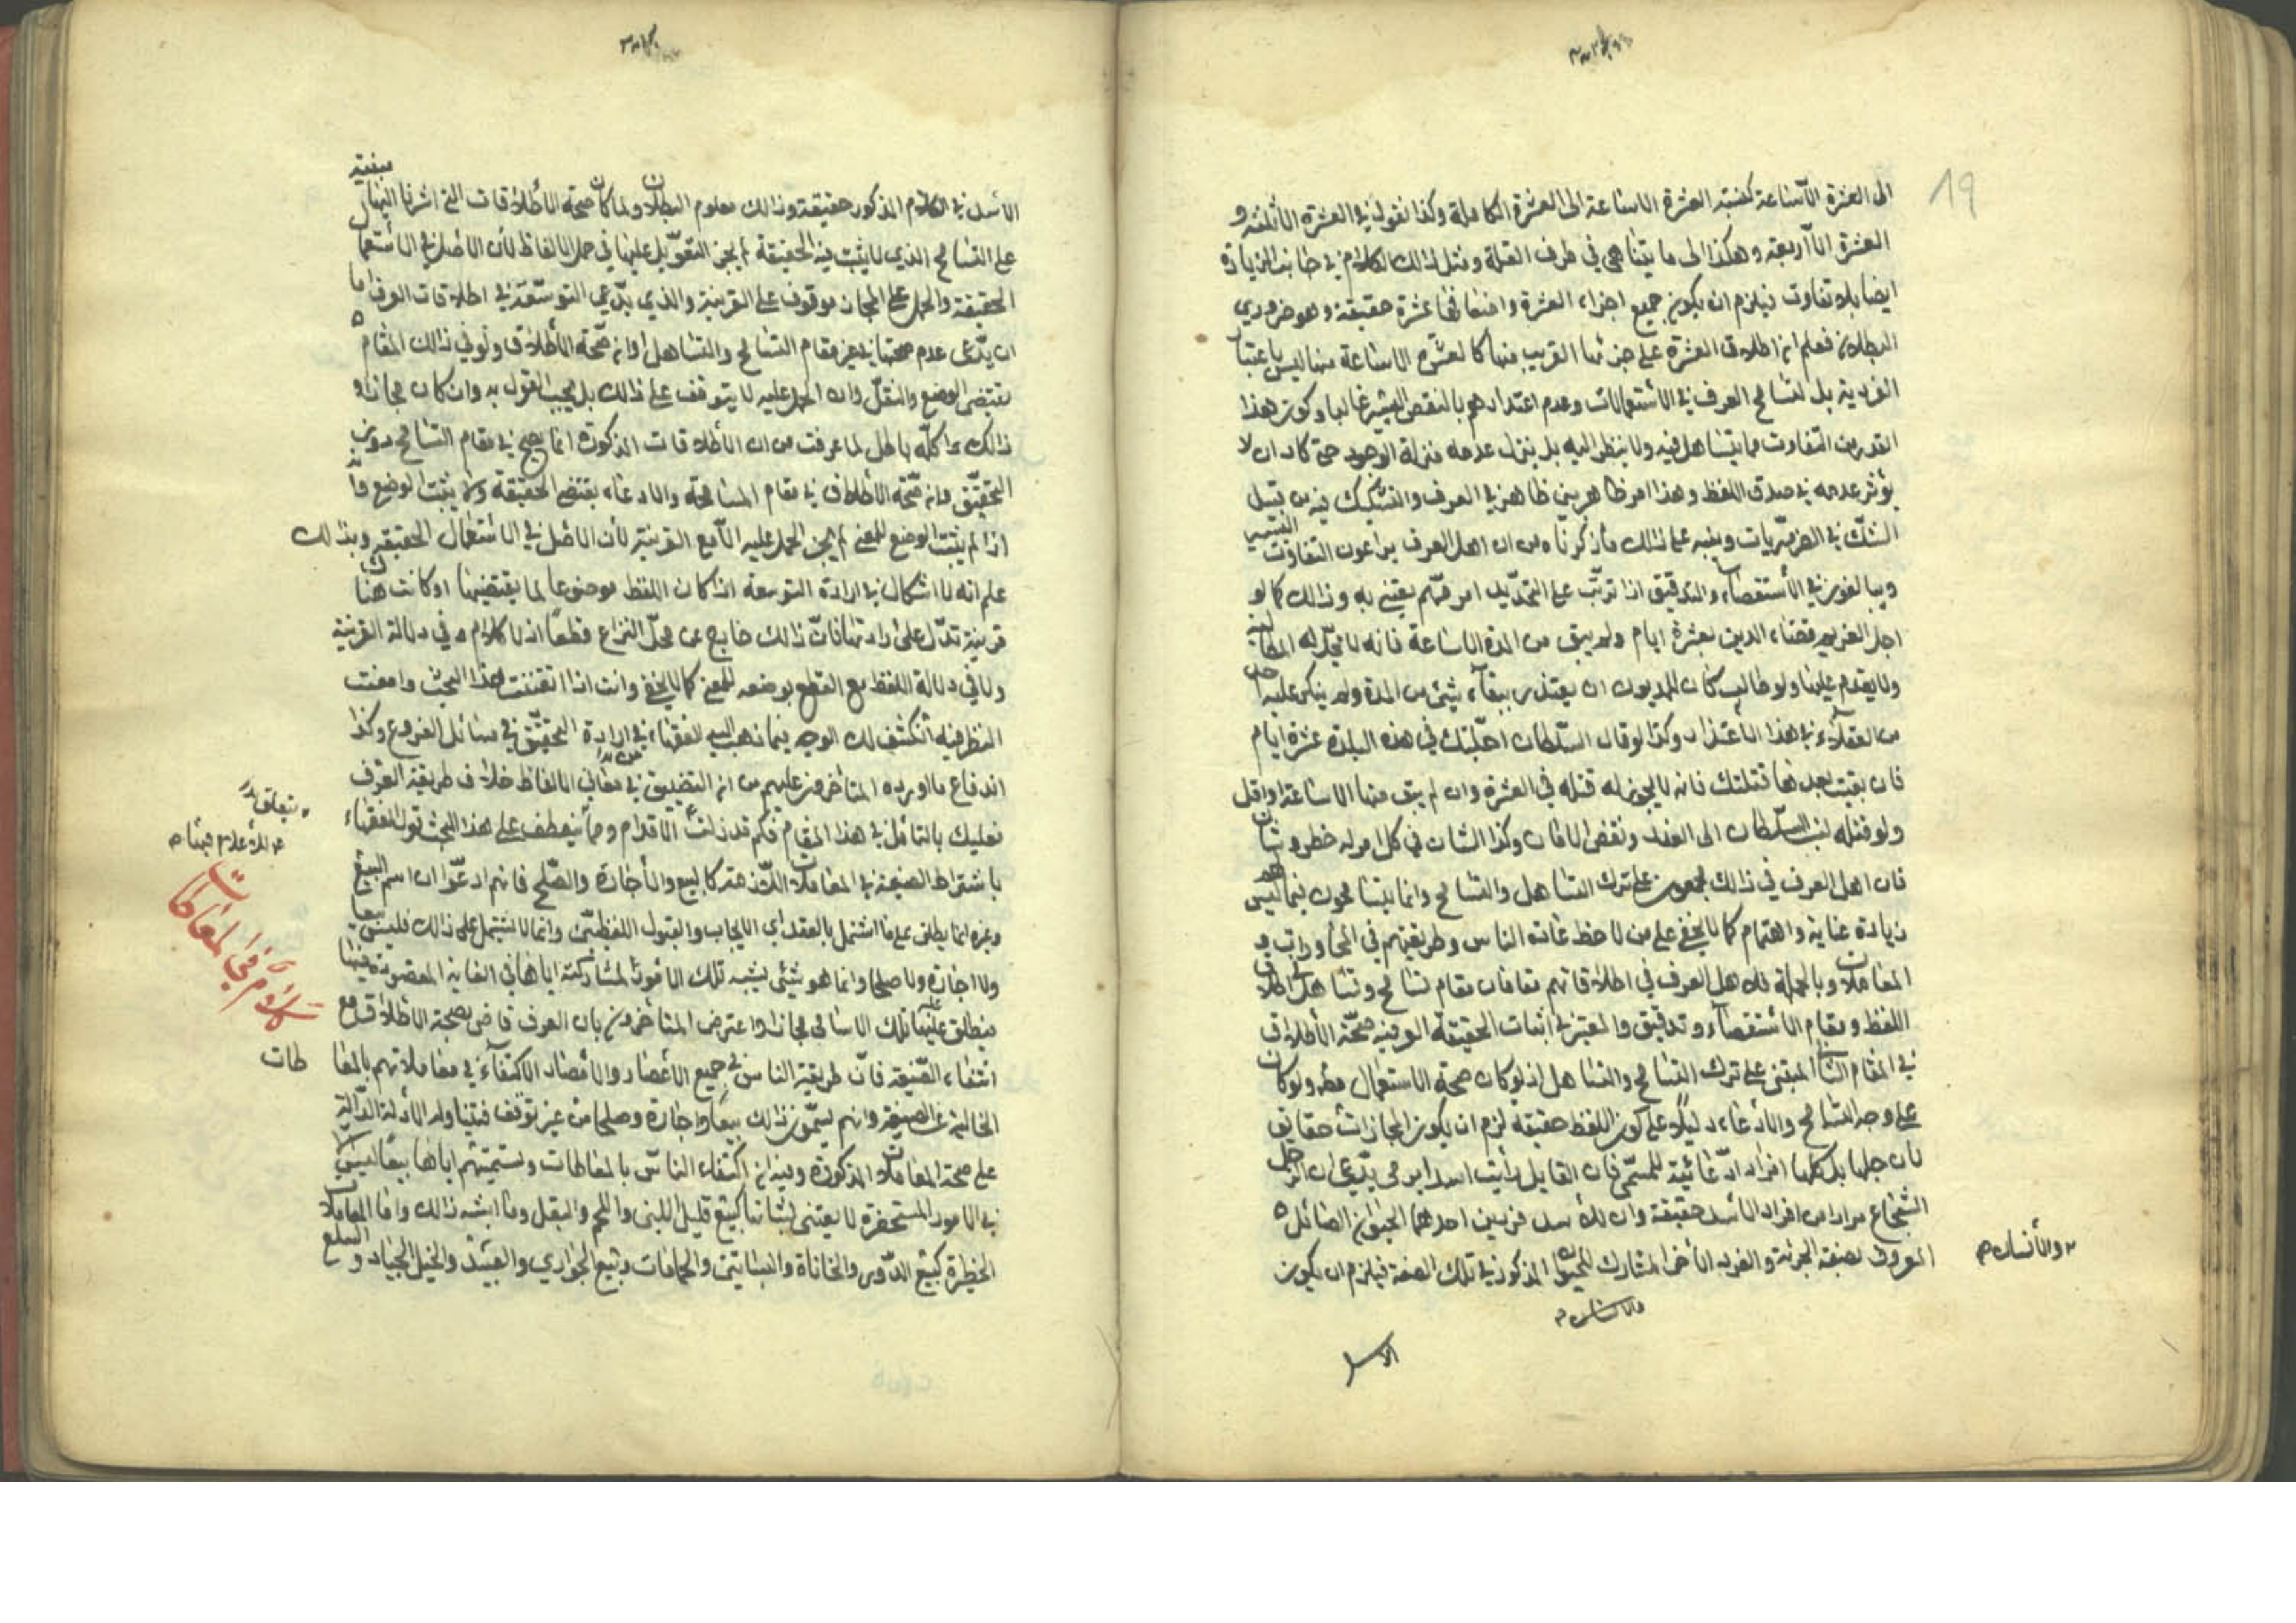 19
الى العشرة الا ساعة كنسبة العشرة الا ساعة الى العشرة الكاملة وكذا نقول في العشرة الا ثلثة و
العشرة الا اربعة وهكذا الى ما يتناهى في طرف القلة ومثل ذلك الكلام في جانب الزيادة
ايضا بلا تفاوت فيلزم ان يكون جميع اجزاء العشرة واضعافها عشرة حقيقة وهو ضروري
البطلان فعلم ان اطلاق العشرة على جزئها القريب منها كالعشرة الا ساعة منها ليس باعتبار
الفردية بل لتسامح العرف في الاستعمالات وعدم اعتدادهم بالنقص اليسير غالبا وكون هذا
القدر من التفاوت مما يتساهل فيه ولا ينظر اليه بل ينزل عدمه منزلة الوجود حتى كاد ان لا
يؤثر عدمه في صدق اللفظ وهذا امر ظاهر بين ظاهر في العرف والتشكيك فيه من قبيل
الشك في الضروريات وينبه على ذلك ما ذكرناه من ان اهل العرف يراعون التفاوت اليسير
ويبالغون في الاستقصاء والتدقيق اذا ترتب على التحديد امر مهم يعتني به وذلك كما لو
اجل الغريم قضاء الدين بعشرة ايام ولم يبق من المدة الا ساعة فانه لا يحل له المطالبة
ولا يقدم عليها ولو طالب كان للمديون ان يعتذر ببقاء شيء من المدة ولم ينكر عليه احد
من العقلاء في هذا الاعتذار وكذا لو قال السلطان اجلتك في هذه البلدة عشرة ايام
فان بقيت بعدها قتلتك فانه لا يجوز له قتله في العشرة وان لم يبق منها الا ساعة او اقل
ولو قتله لنسب السلطان الى الغدر ونقض الامان وكذا الشان في كل امر له خطر وشان
فان اهل العرف في ذلك مجمعون على ترك التساهل والتسامح وانما يتسامحون فيما ليس فيه
زيادة عناية واهتمام كما لا يخفى على من لاحظ عادة الناس وطريقتهم في المحاورات و
المعاملات وبالجملة فلاهل العرف في اطلاقاتهم مقامان مقام تسامح وتساهل في اطلاق
اللفظ ومقام استقصاء وتدقيق والمعتبر في اثبات الحقيقة العرفية صحة الاطلاق
في المقام الثاني المبتني على ترك التسامح والتساهل اذ لو كان صحة الاستعمال مطلقا ولو كان
على وجه التسامح والادعاء دليلا على كون اللفظ حقيقة لزم ان يكون المجازات حقايق
لان جلها بل كلها افراد ادعائية للمسمى فان القايل رايت اسدا يرمي يدعي ان الرجل
الشجاع مرادا من افراد الاسد حقيقة وان للاسد فردين احدهما الحيوان الصائل
المعروف بصفة الجرئة والفرد الاخر المشارك للحيوان المذكور في تلك الصفة فيلزم ان يكون
والانسان
الاسد
الاسد في الكلام المذكور حقيقة وذلك معلوم البطلان ولما كان صحة الاطلاقات التي اشرنا اليها مبنية
على التسامح الذي لا يثبت فيه الحقيقة لم يجز التعويل عليها في حمل الالفاظ لان الاصل في الاستعمال
الحقيقة والحمل على المجاز موقوف على القرينة والذي يدعي التوسعة في اطلاقات العرف اما
ان يدعي عدم صحتها في غير مقام التسامح والتساهل او ان صحة الاطلاق ولو في ذلك المقام
تقتضي الوضع والنقل وان الحمل عليه لا يتوقف على ذلك بل يجب القول به وان كان مجازا و
ذلك كله باطل لما عرفت من ان الاطلاقات المذكورة انما يصح في مقام التسامح دون
التحقيق وان صحة الاطلاق في مقام المسامحة والادعاء يقتضي الحقيقة ولا يثبت الوضع وانه
اذا لم يثبت الوضع للمعنى لم يجز الحمل عليه الا مع القرينة لان الاصل في الاستعمال الحقيقة وبذلك
علم انه لا اشكال في ارادة التوسعة اذا كان اللفظ موضوعا لما يقتضيها او كانت هناك
قرينة تدل على ارادتها فان ذلك خارج عن محل النزاع قطعا اذ لا كلام في دلالة القرينة
ولا في دلالة اللفظ مع القطع بوضعه للمعنى كما لا يخفى وانت اذا اتقنت هذا البحث وامعنت
النظر فيه انكشف لك الوجه فيما ذهب اليه الفقهاء في ارادة التحقيق في مسائل الفروع وكذا
اندفاع ما اورده المتاخرون عليهم من ان التضييق في معاني الالفاظ خلاف طريقة العرف
فعليك بالتامل في هذا المقام فكم قد زلت الاقدام ومما ينعطف على هذا البحث قول الفقهاء
باشتراط الصيغة في المعاملات اللازمة كالبيع والاجارة والصلح فانهم ادعوا ان اسم البيع
وغيره انما يطلق على ما اشتمل بالعقد اي الايجاب والقبول اللفظيين وانما لا يشتمل على ذلك فليس بيعا
ولا اجارة ولا صلحا وانما هو شيء يشبه تلك الامور لمشاركته اياها في الغاية المقصودة منها
فيطلق عليها تلك الاسامي مجازا واعترض المتاخرون بان العرف قاض بصحة الاطلاق مع
انتفاء الصيغة فان طريقة الناس في جميع الاعصار والامصار الاكتفاء في معاملاتهم بالمعا
طات
الخالية عن الصيغة وانهم يسمون ذلك بيعا واجارة وصلحا من غير توقف فيتناوله الادلة الدالة
على صحة المعاملات المذكورة وفيه ان اكتفاء الناس بالمعاطات وتسميتهم اياها بيعا ليس الا
في الامور المستحقرة لا يعتني بشانها كبيع قليل اللبن واللحم والبقل وما اشبه ذلك واما المعاملات
الخطيرة كبيع الدور والخانات والبساتين والحمامات وبيع الجواري والعبيد والخيل الجياد و السلع
كلام في المعاطات